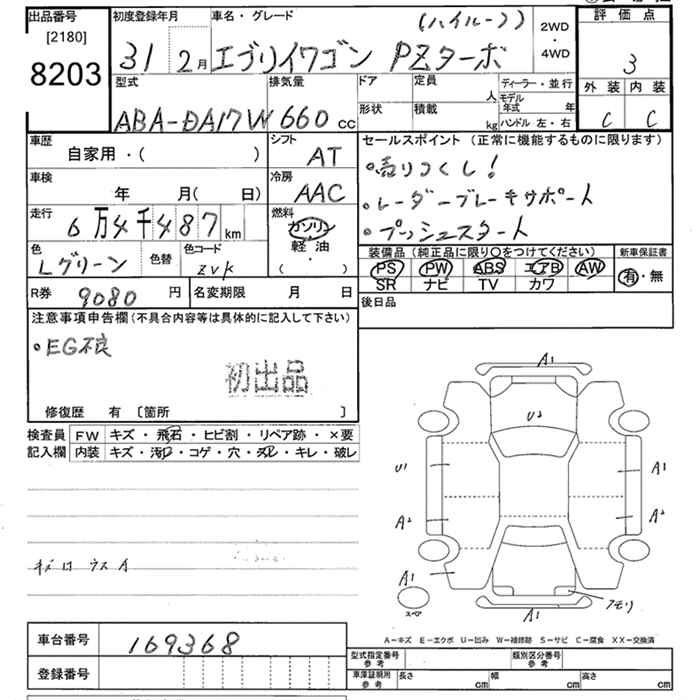 出品番号
[2180]
8203
初度登録年月
31 2月
車名・グレード
(ハイルーフ)
エブリイワゴン PZターボ
2WD
・
4WD
評価点
3
外装 内装
C C
型式
ABA-DA17W
排気量
660 CC
ドア
定員
人
形状
積載
kg
ディーラー・並行
モデル年式 年
ハンドル 左・右
車歴
自家用・( )
シフト
AT
車検
年 月( 日)
冷房
AAC
走行
6万4千487km
燃料
ガソリン
軽油
( )
色
Lグリーン
色替
色コード
ZVK
R券
9080円
名変期限 月 日
セールスポイント (正常に機能するものに限ります)
・売りつくし!
・レーダーブレーキサポート
・プッシュスタート
装備品 (純正品に限り○をつけてください)
PS PW ABS エアB AW
SR ナビ TV カワ
新車保証書
有・無
後日品
注意事項申告欄(不具合内容等は具体的に記入して下さい)
・EG不良
初出品
修復歴 有 [箇所 ]
検査員記入欄
FW キズ・飛石・ヒビ割・リペア跡・×要
内装 キズ・汚れ・コゲ・穴・スレ・キレ・破レ
キズ ウスイ
A1
U2
U1
A1
A2
A2
A1
A1
スペア
A-キズ E-エクボ U-凹み W-補修跡 S-サビ C-腐食 XX-交換済
車台番号
169368
登録番号
型式指定番号
参考
類別区分番号
参考
車庫証明用
参考
長さ cm
幅 cm
高さ cm